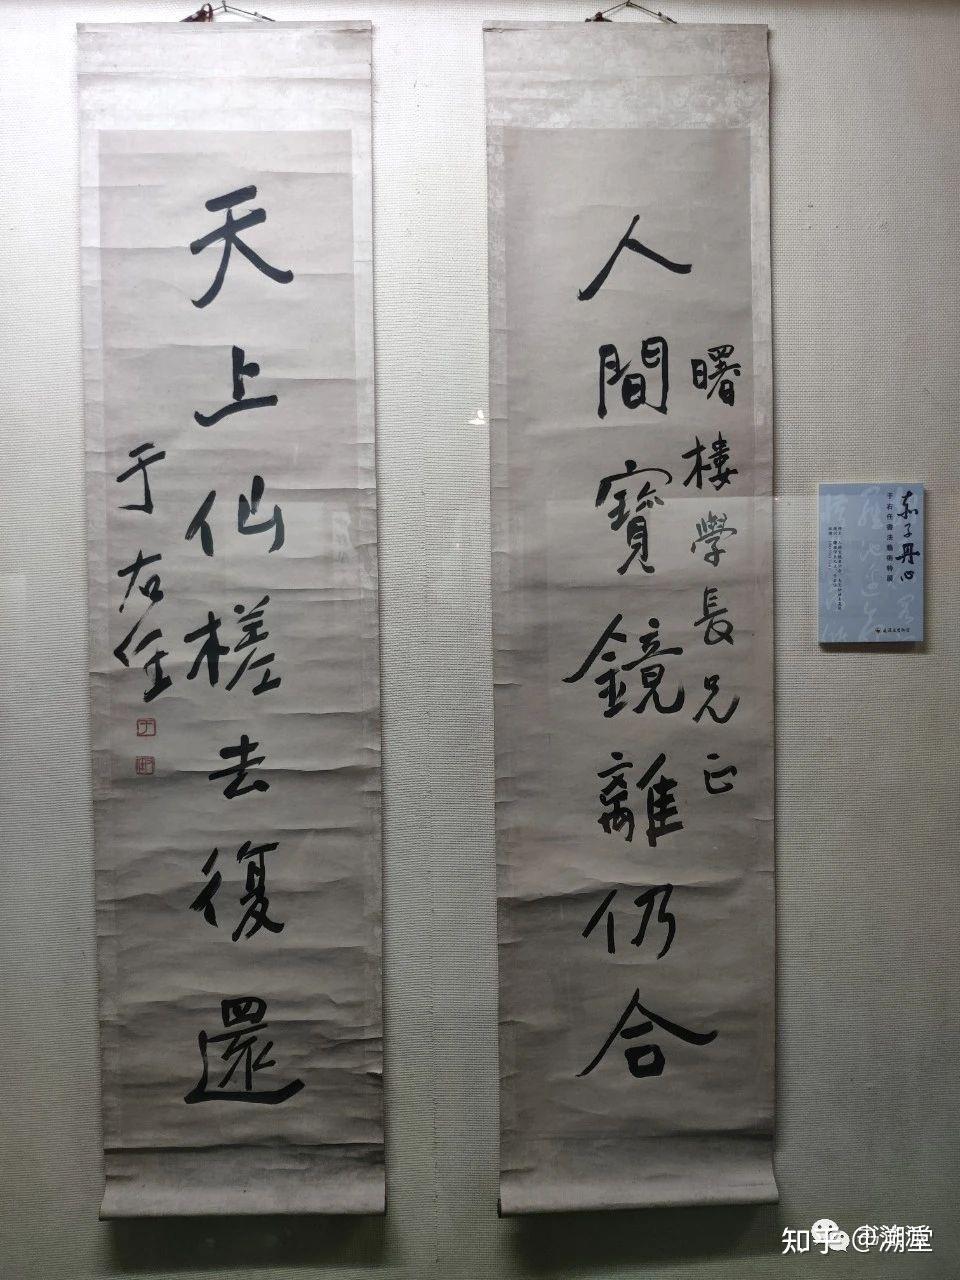 人間寶鏡離仍合
曙樓學長兄正
天上仙槎去復還
于右任
赤子丹心
于右任書法藝術特展
知乎 @溯堂